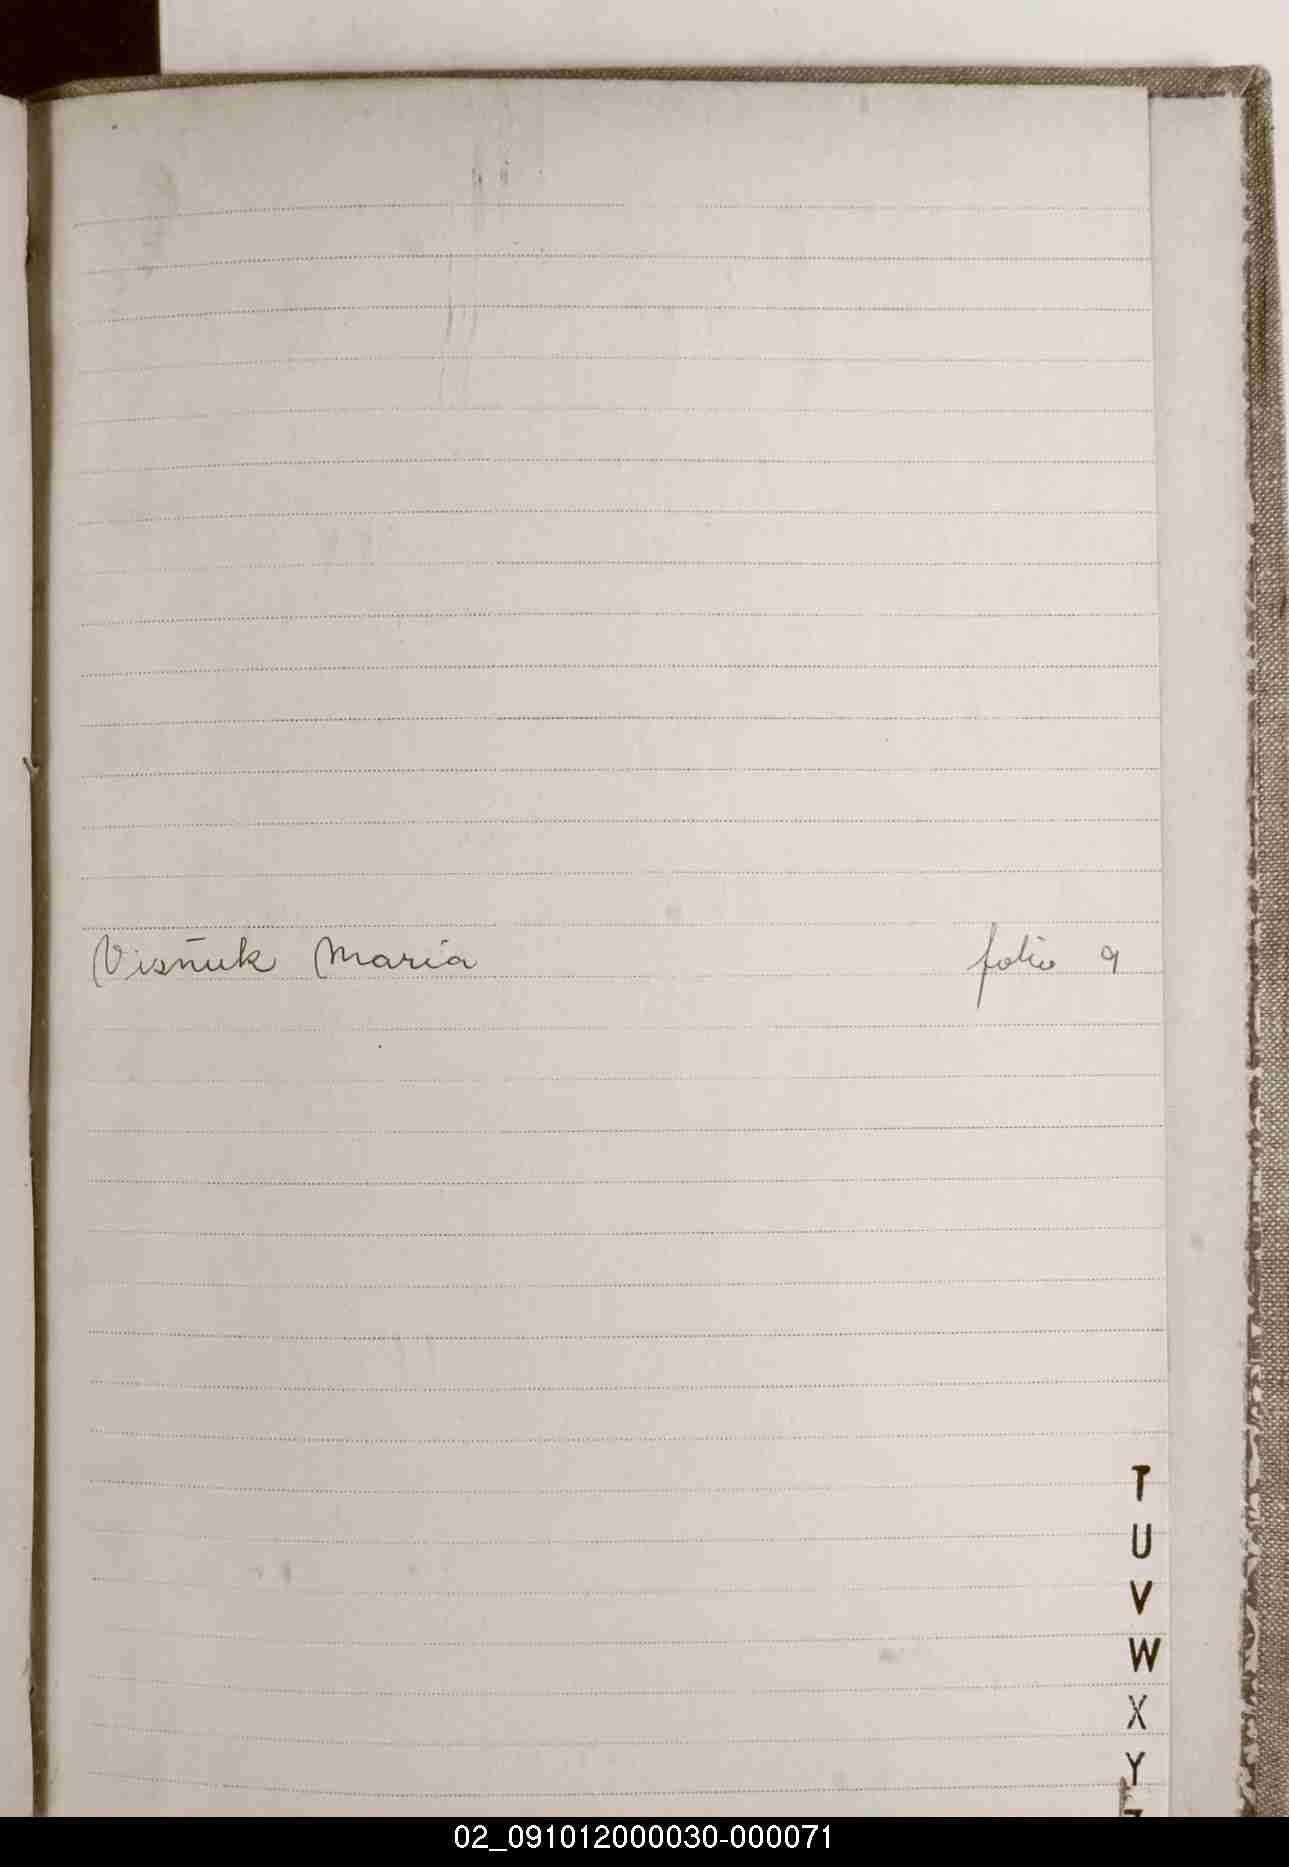 Visñuk Maria folio 9
T
U
V
W
X
Y
Z
02_091012000030-000071